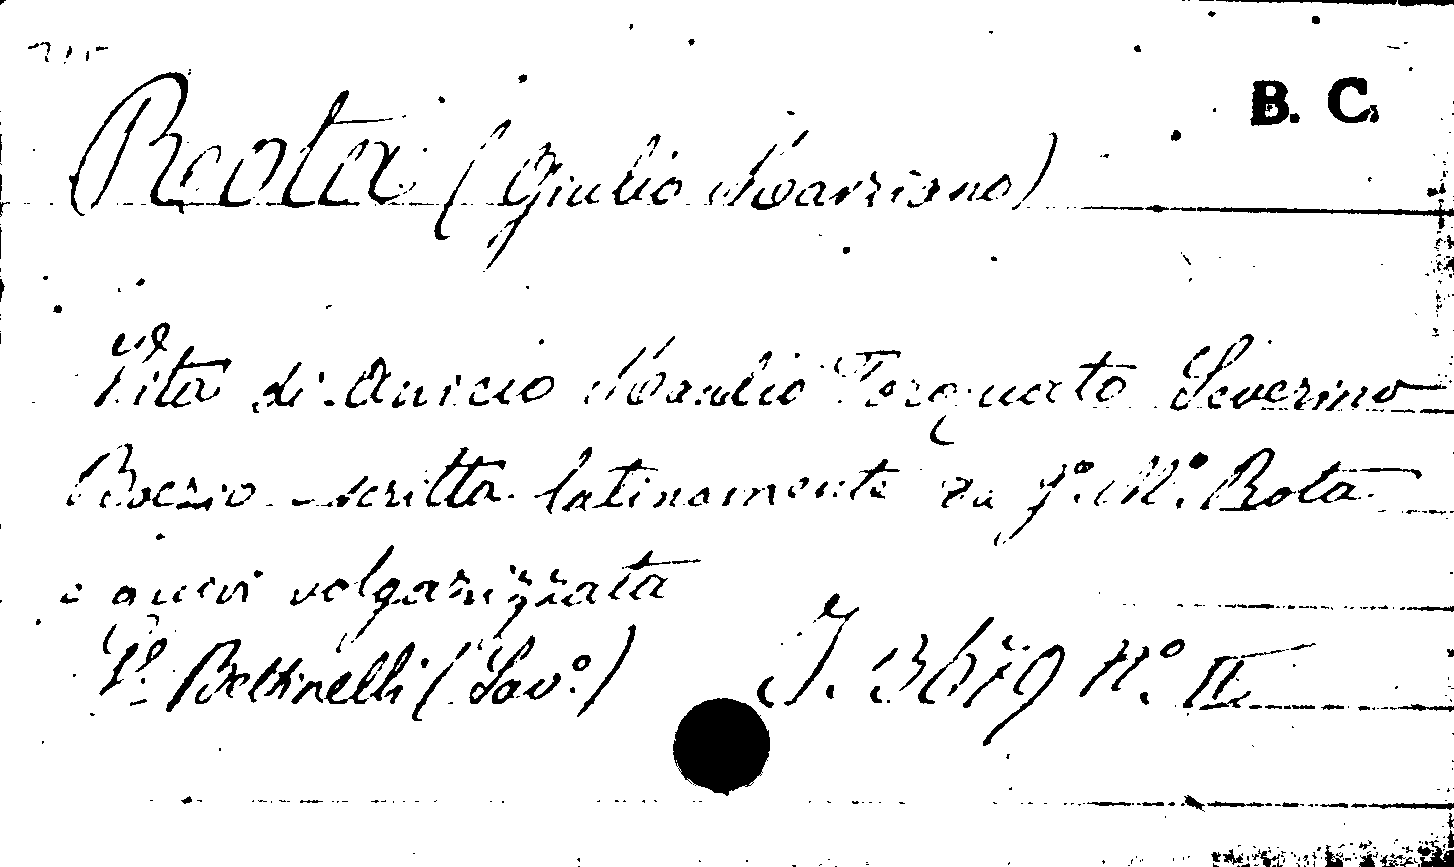 B. C.
Rota (Giulio Marziano)
Vita di Anicio Manlio Torquato Severino
Boezio scritta latinamente da G.º M.º Rota
e quivi volgarizzata
Vº Bettinelli (Sav.º)
J. 3679 Nº. II